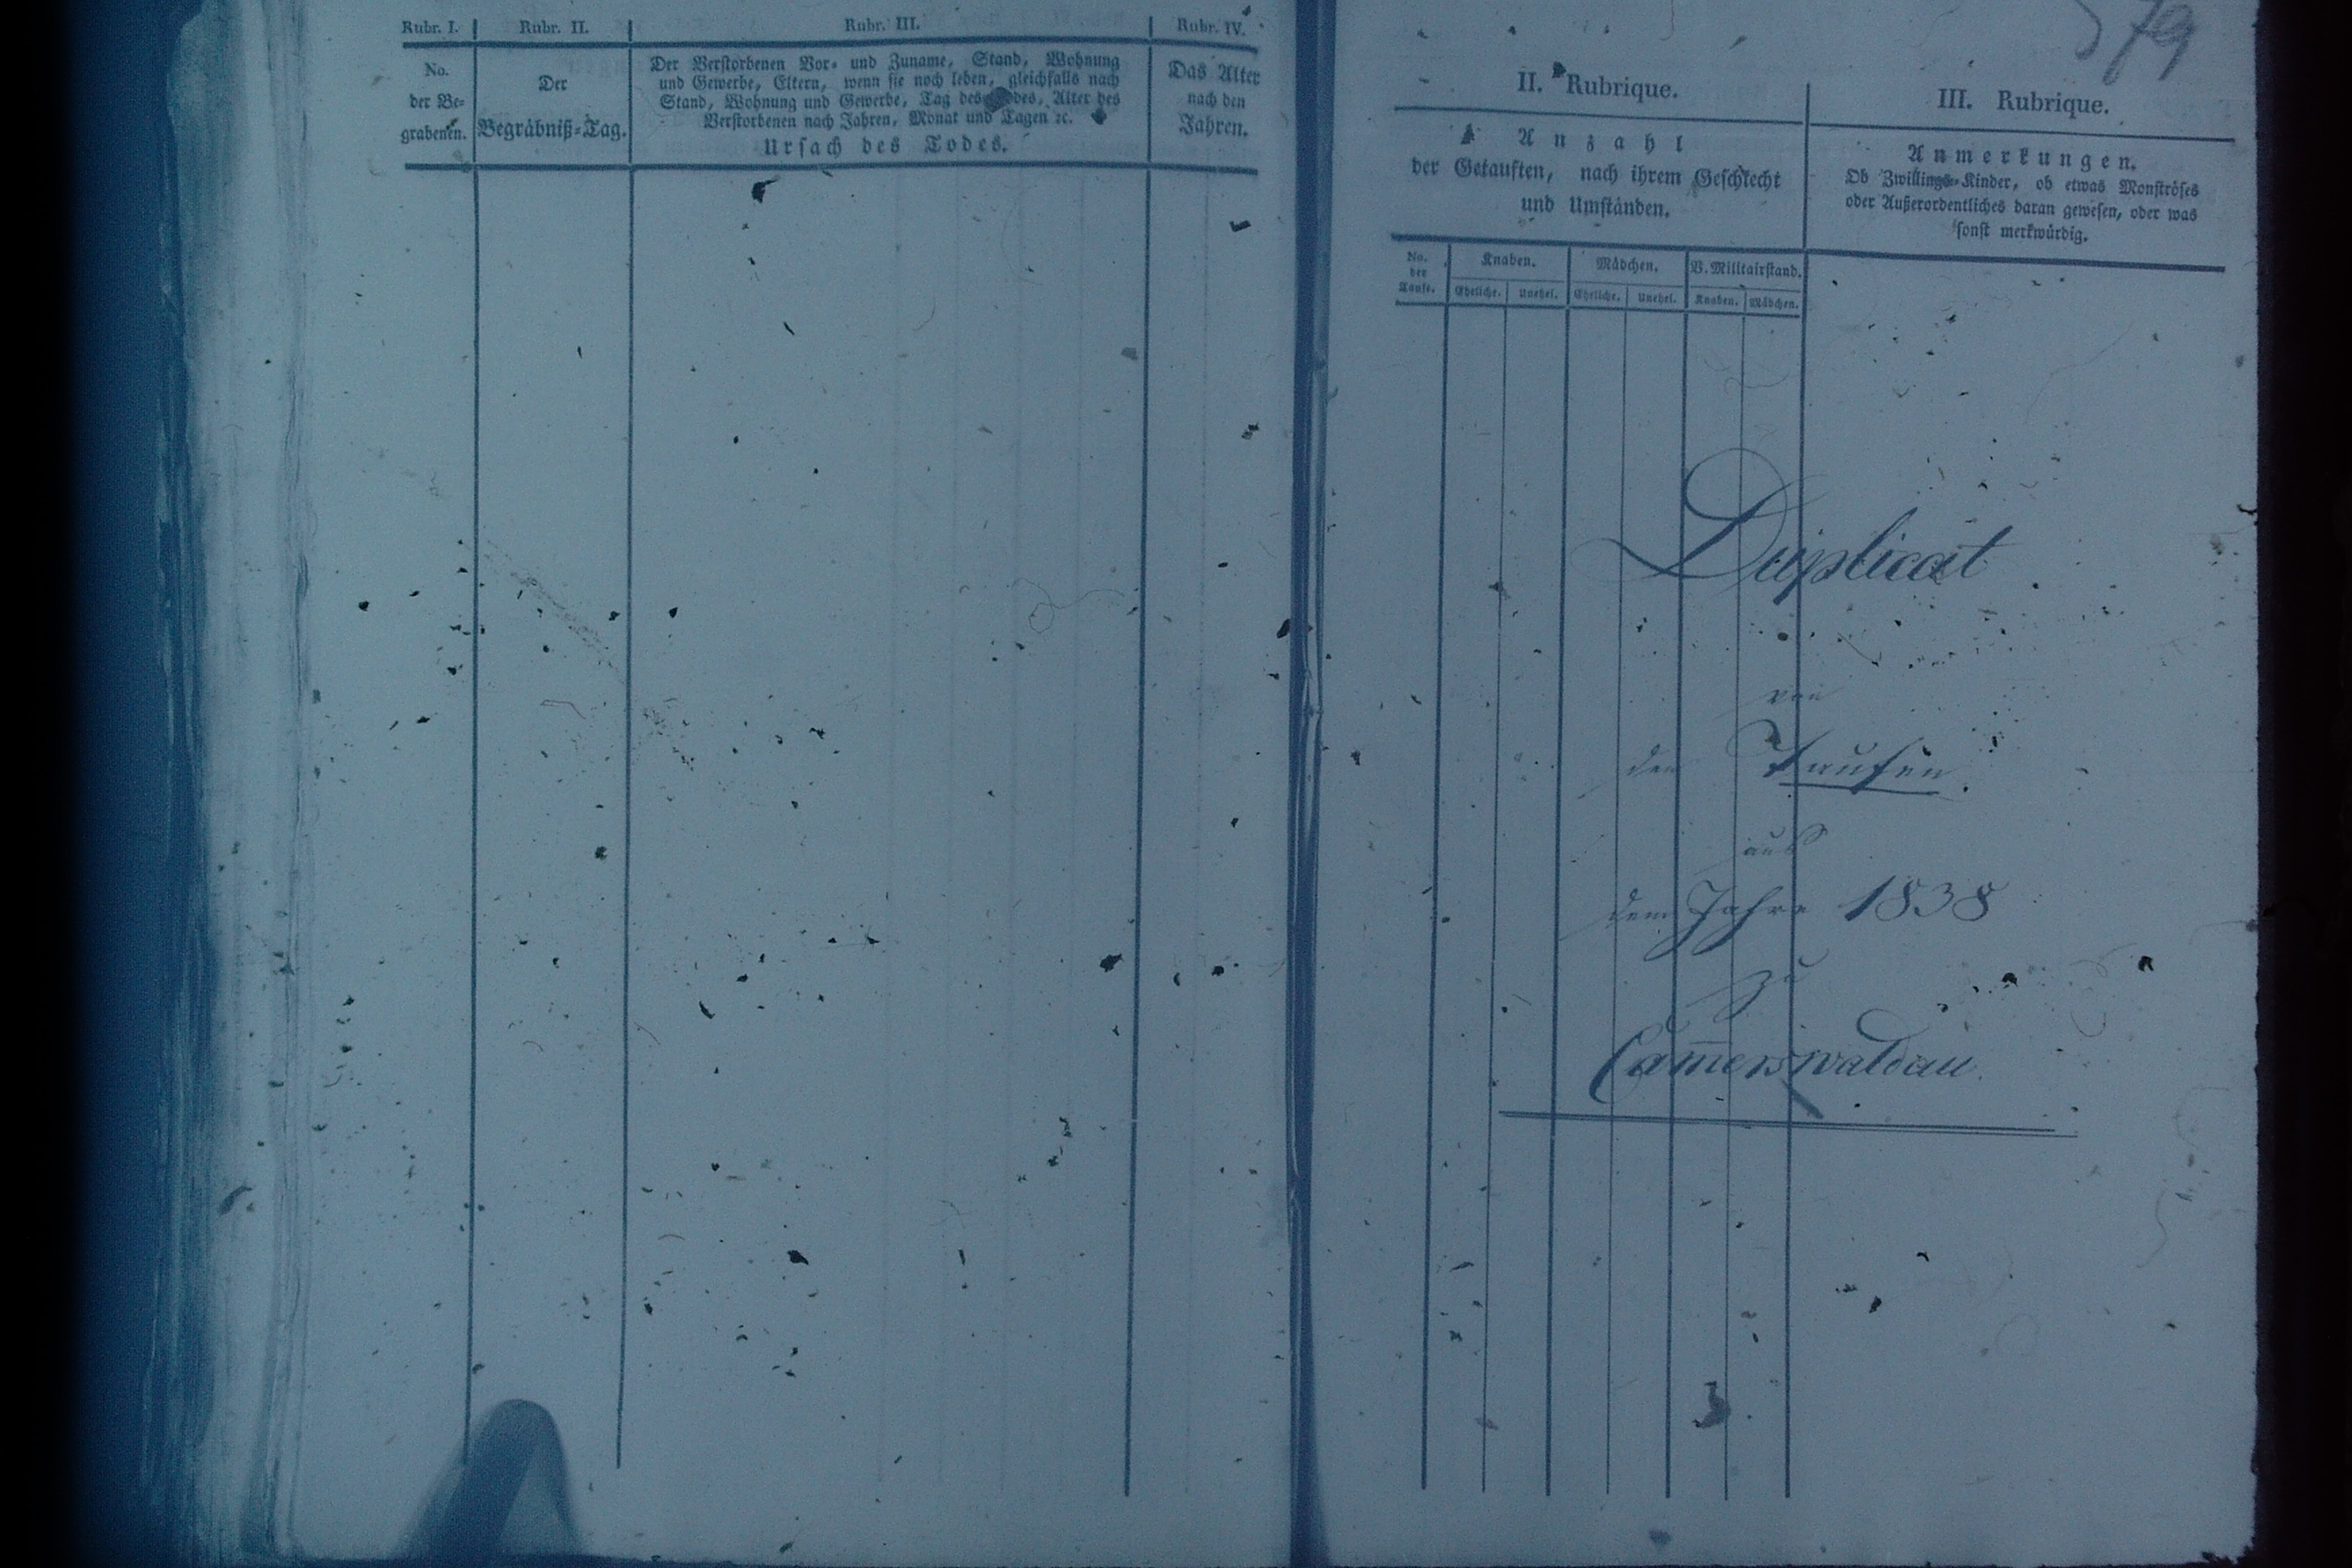 Rubr. I.
No.
der Be-
grabenen.
Rubr. II.
Der
Begräbniß-Tag.
Rubr. III.
Der Verstorbenen Vor- und Zuname, Stand, Wohnung
und Gewerbe, Eltern, wenn sie noch leben, gleichfalls nach
Stand, Wohnung und Gewerbe, Tag des Todes, Alter des
Verstorbenen nach Jahren, Monat und Tagen ꝛc.
Ursach des Todes.
Rubr. IV.
Das Alter
nach den
Jahren.
579
II. Rubrique.
Anzahl
der Getauften, nach ihrem Geschlecht
und Umständen.
No.
der
Taufe.
Knaben.
Eheliche. Unehel.
Mädchen.
Eheliche. Unehel.
V. Militairstand.
Knaben. Mädchen.
III. Rubrique.
Anmerkungen.
Ob Zwillings-Kinder, ob etwas Monströses
oder Außerordentliches daran gewesen, oder was
sonst merkwürdig.
Duplicat
von
den Taufen
aus
dem Jahre 1838
zu
Cam̅erswaldau.